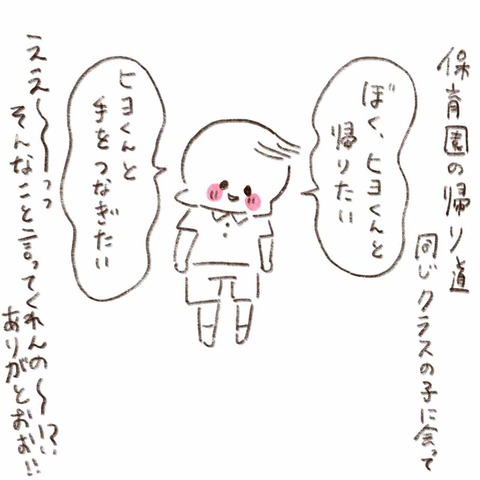 保育園の帰り道
同じクラスの子に会って
ぼく、ヒヨくんと
帰りたい
ヒヨくんと
手をつなぎたい
ええ〜〜っっ
そんなこと言ってくれんの〜!?
ありがとおお!!